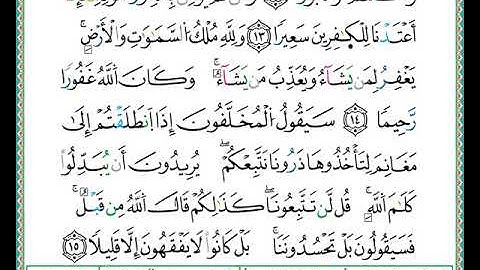 أَعْتَدْنَا لِلْكَٰفِرِينَ سَعِيرًا ١٣ وَلِلَّهِ مُلْكُ السَّمَٰوَٰتِ وَالْأَرْضِ ۚ
يَغْفِرُ لِمَن يَشَآءُ وَيُعَذِّبُ مَن يَشَآءُ ۚ وَكَانَ اللَّهُ غَفُورًا
رَّحِيمًا ١٤ سَيَقُولُ الْمُخَلَّفُونَ إِذَا انطَلَقْتُمْ إِلَىٰ
مَغَانِمَ لِتَأْخُذُوهَا ذَرُونَا نَتَّبِعْكُمْ ۖ يُرِيدُونَ أَن يُبَدِّلُوا
كَلَٰمَ اللَّهِ ۚ قُل لَّن تَتَّبِعُونَا كَذَٰلِكُمْ قَالَ اللَّهُ مِن قَبْلُ ۖ
فَسَيَقُولُونَ بَلْ تَحْسُدُونَنَا ۚ بَلْ كَانُوا لَا يَفْقَهُونَ إِلَّا قَلِيلًا ١٥